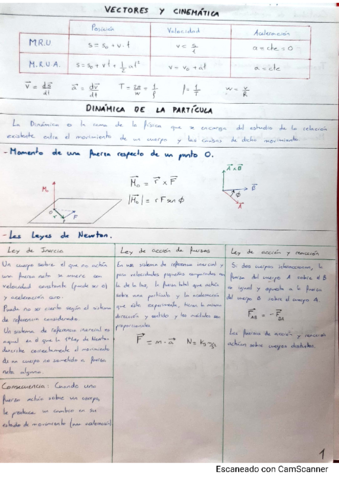 VECTORES Y CINEMÁTICA
Posición Velocidad Aceleración
M.R.U. s = s₀ + v·t v = s/t a = cte = 0
M.R.U.A. s = s₀ + v₀t + ½at² v = v₀ + at a = cte
DINÁMICA DE LA PARTÍCULA
La Dinámica es la rama de la física que se encarga del estudio de la relación
existente entre el movimiento de un cuerpo y las causas de dicho movimiento.
- Momento de una fuerza respecto de un punto O.
M₀ = r × F
|M₀| = r F sen φ
- Las Leyes de Newton.
Ley de Inercia
Un cuerpo sobre el que no actúa
una fuerza neta se mueve con
velocidad constante (puede ser 0)
y aceleración cero.
Puede no ser cierta según el sistema
de referencia considerado.
Un sistema de referencia inercial es
aquel en el que la 1ª ley de Newton
describe correctamente el movimiento
de un cuerpo no sometido a fuerza
neta alguna.
Consecuencia: Cuando una
fuerza actúa sobre un cuerpo,
le produce un cambio en su
estado de movimiento
Ley de acción de fuerzas
sistema de referencia inercial y
para velocidades pequeñas comparadas con
la de la luz, la fuerza total que actúa
sobre una partícula y la aceleración
que esta experimenta, tienen la misma
dirección y sentido y los módulos son
proporcionales.
F = m · a
Ley de acción y reacción
Si dos cuerpos interaccionan, la
fuerza del cuerpo A sobre el B
es igual y opuesta a la fuerza
del cuerpo B sobre el cuerpo A.
Las fuerzas de acción y reacción
actúan sobre cuerpos distintos.
1
Escaneado con CamScanner